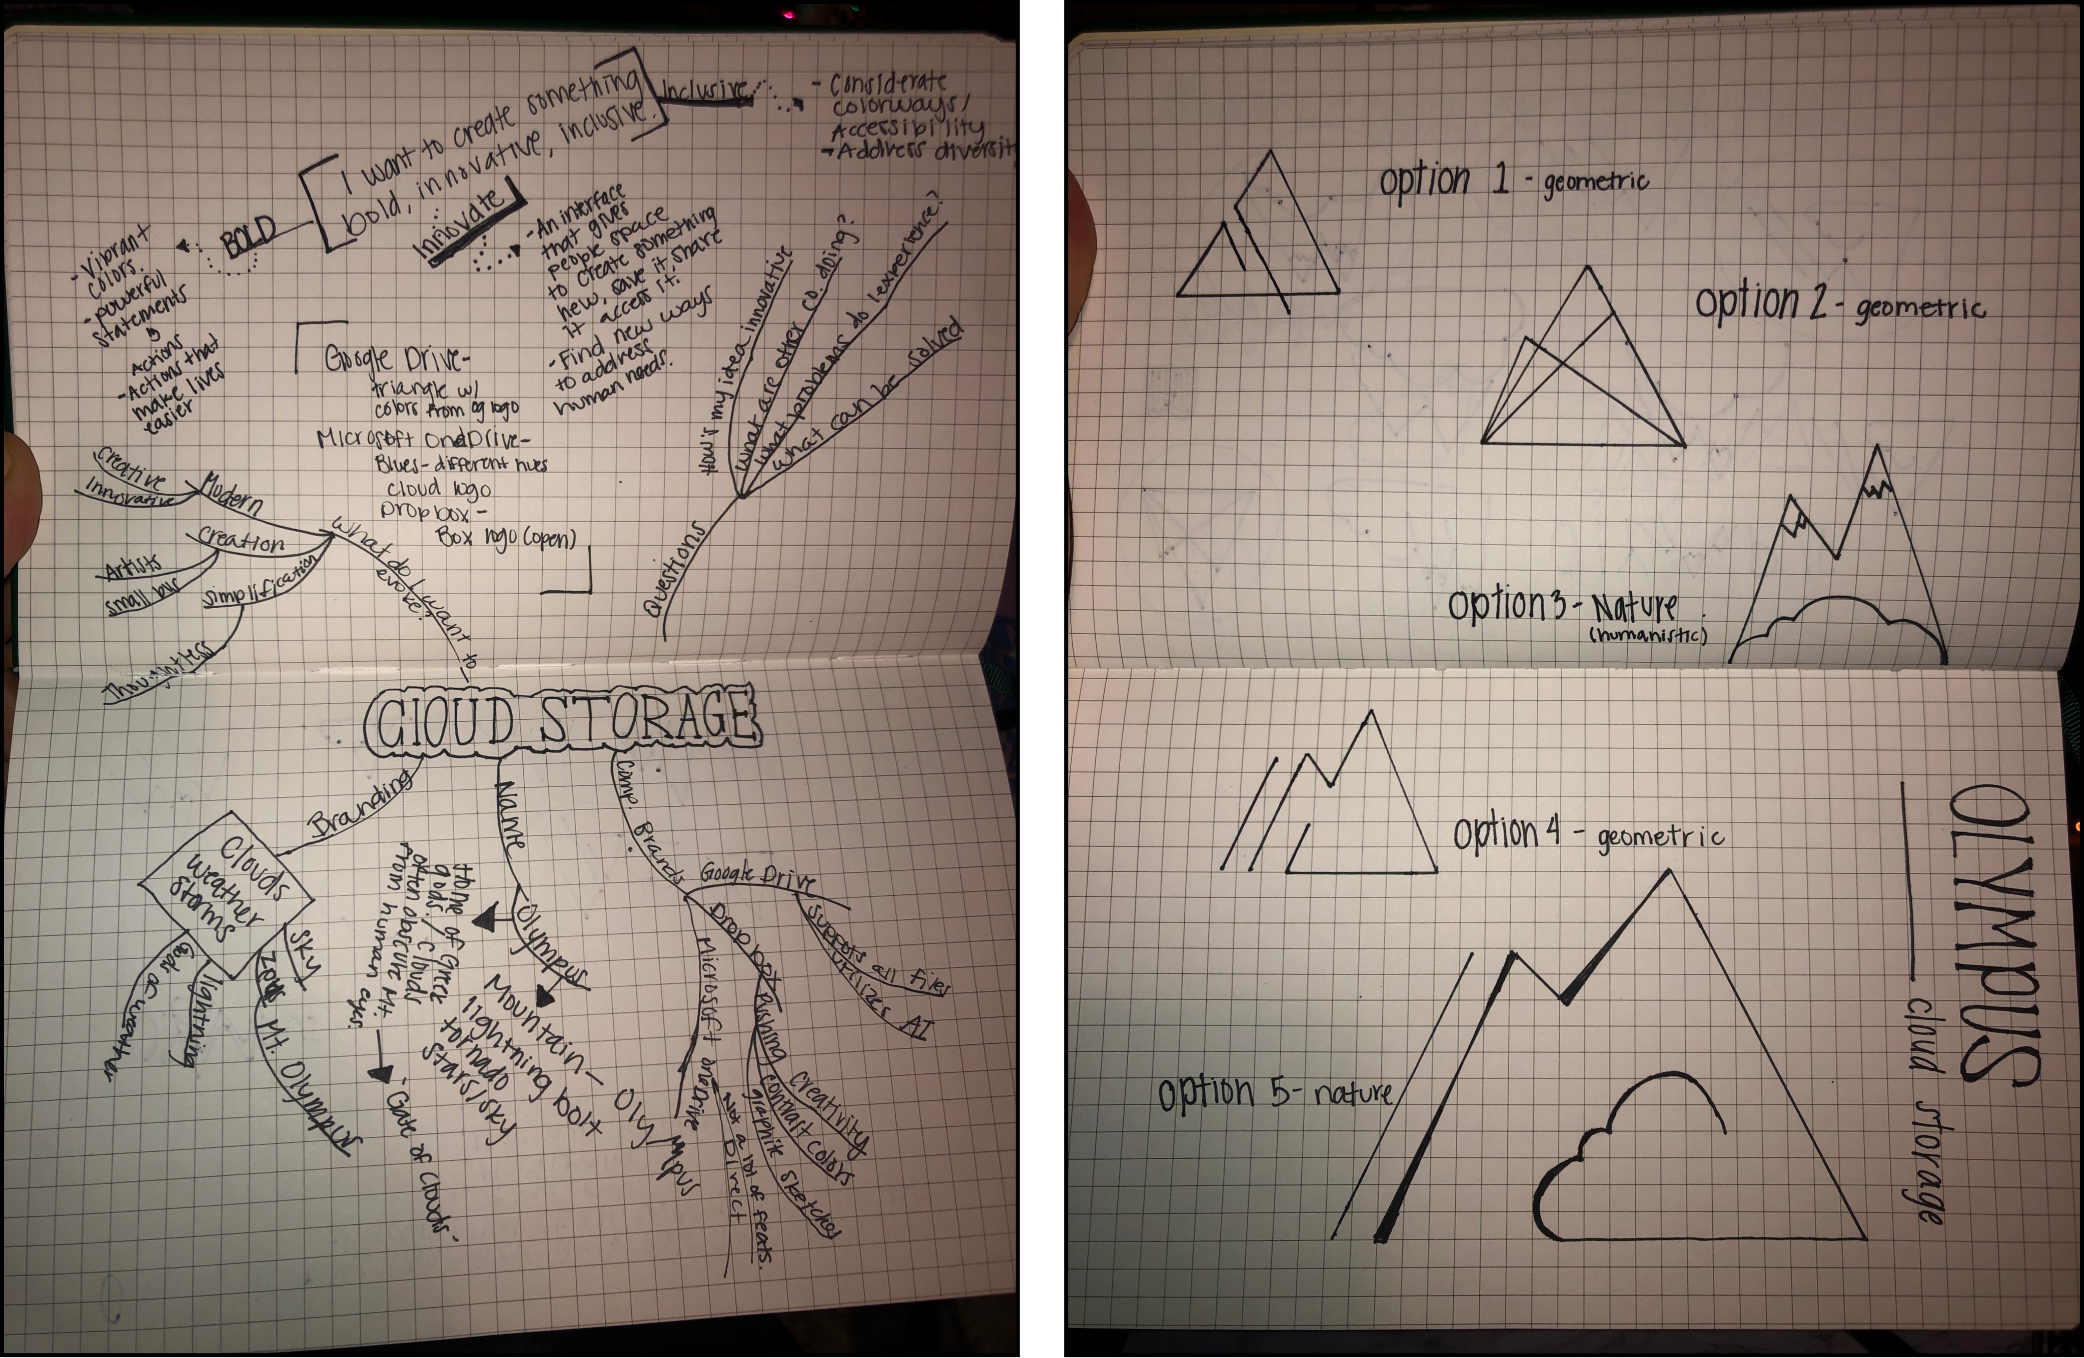 I want to create something
bold, innovative, inclusive.
Inclusive
- Considerate
colorways/
Accessibility
- Address diversit
BOLD
- Vibrant
colors.
- powerful
statements
Actions
- Actions that
make lives
easier
Innovate
- An interface
that gives
people space
to create something
new, save it, share
it access it.
- Find new ways
to address
human needs.
Google Drive-
triangle w/
colors from og logo
Microsoft OneDrive-
Blues- different hues
cloud logo
Dropbox-
Box logo (open)
Questions
How's my idea innovative
What are other co. doing?
What problems do I experience?
What can be solved
What do I want to
evoke?
Modern
Creative
Innovative
Creation
Artists
small bus
Simplification
Thoughtless
ClOUD STORAGE
Branding
Clouds
weather
storms
Gods of weather
lightning
Zeus
Mt. Olympus
SKY
Name
Olympus
Home of Greek
gods. / clouds
often obscure Mt.
from human eyes.
- Gate of Clouds-
Mountain-
lightning bolt
tornado
stars/sky
Olympus
Comp. Brands
Google Drive
supports all files
utilizes AI
Dropbox
Pushing
Creativity
contrast colors
graphite sketchy
Microsoft oneDrive
Not a lot of feats.
Direct
option 1 - geometric
option 2 - geometric
option 3 - Nature
(humanistic)
option 4 - geometric
option 5- nature
OLYMPUS
cloud storage